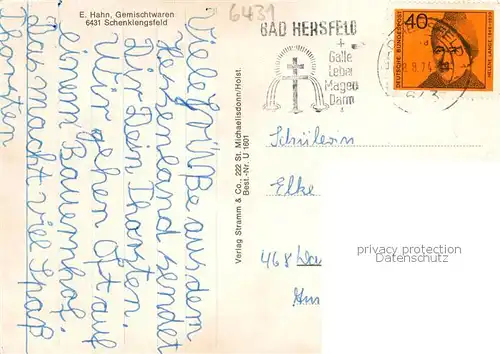 E. Hahn, Gemischtwaren
6431 Schenklengsfeld
6431
BAD HERSFELD
Galle
Leber
Magen
Darm
40
DEUTSCHE BUNDESPOST
HELENE LANGE
Viele Grüße aus dem
sendet
Dir Dein Thorsten.
Wir gehen oft auf
einem Bauernhof.
Das macht viel Spaß
Thorsten
Verlag Stramm & Co., 222 St. Michaelisdonn/Holst
Best.-Nr. U 1601
Schülerin
Elke
468
privacy protection
watermark